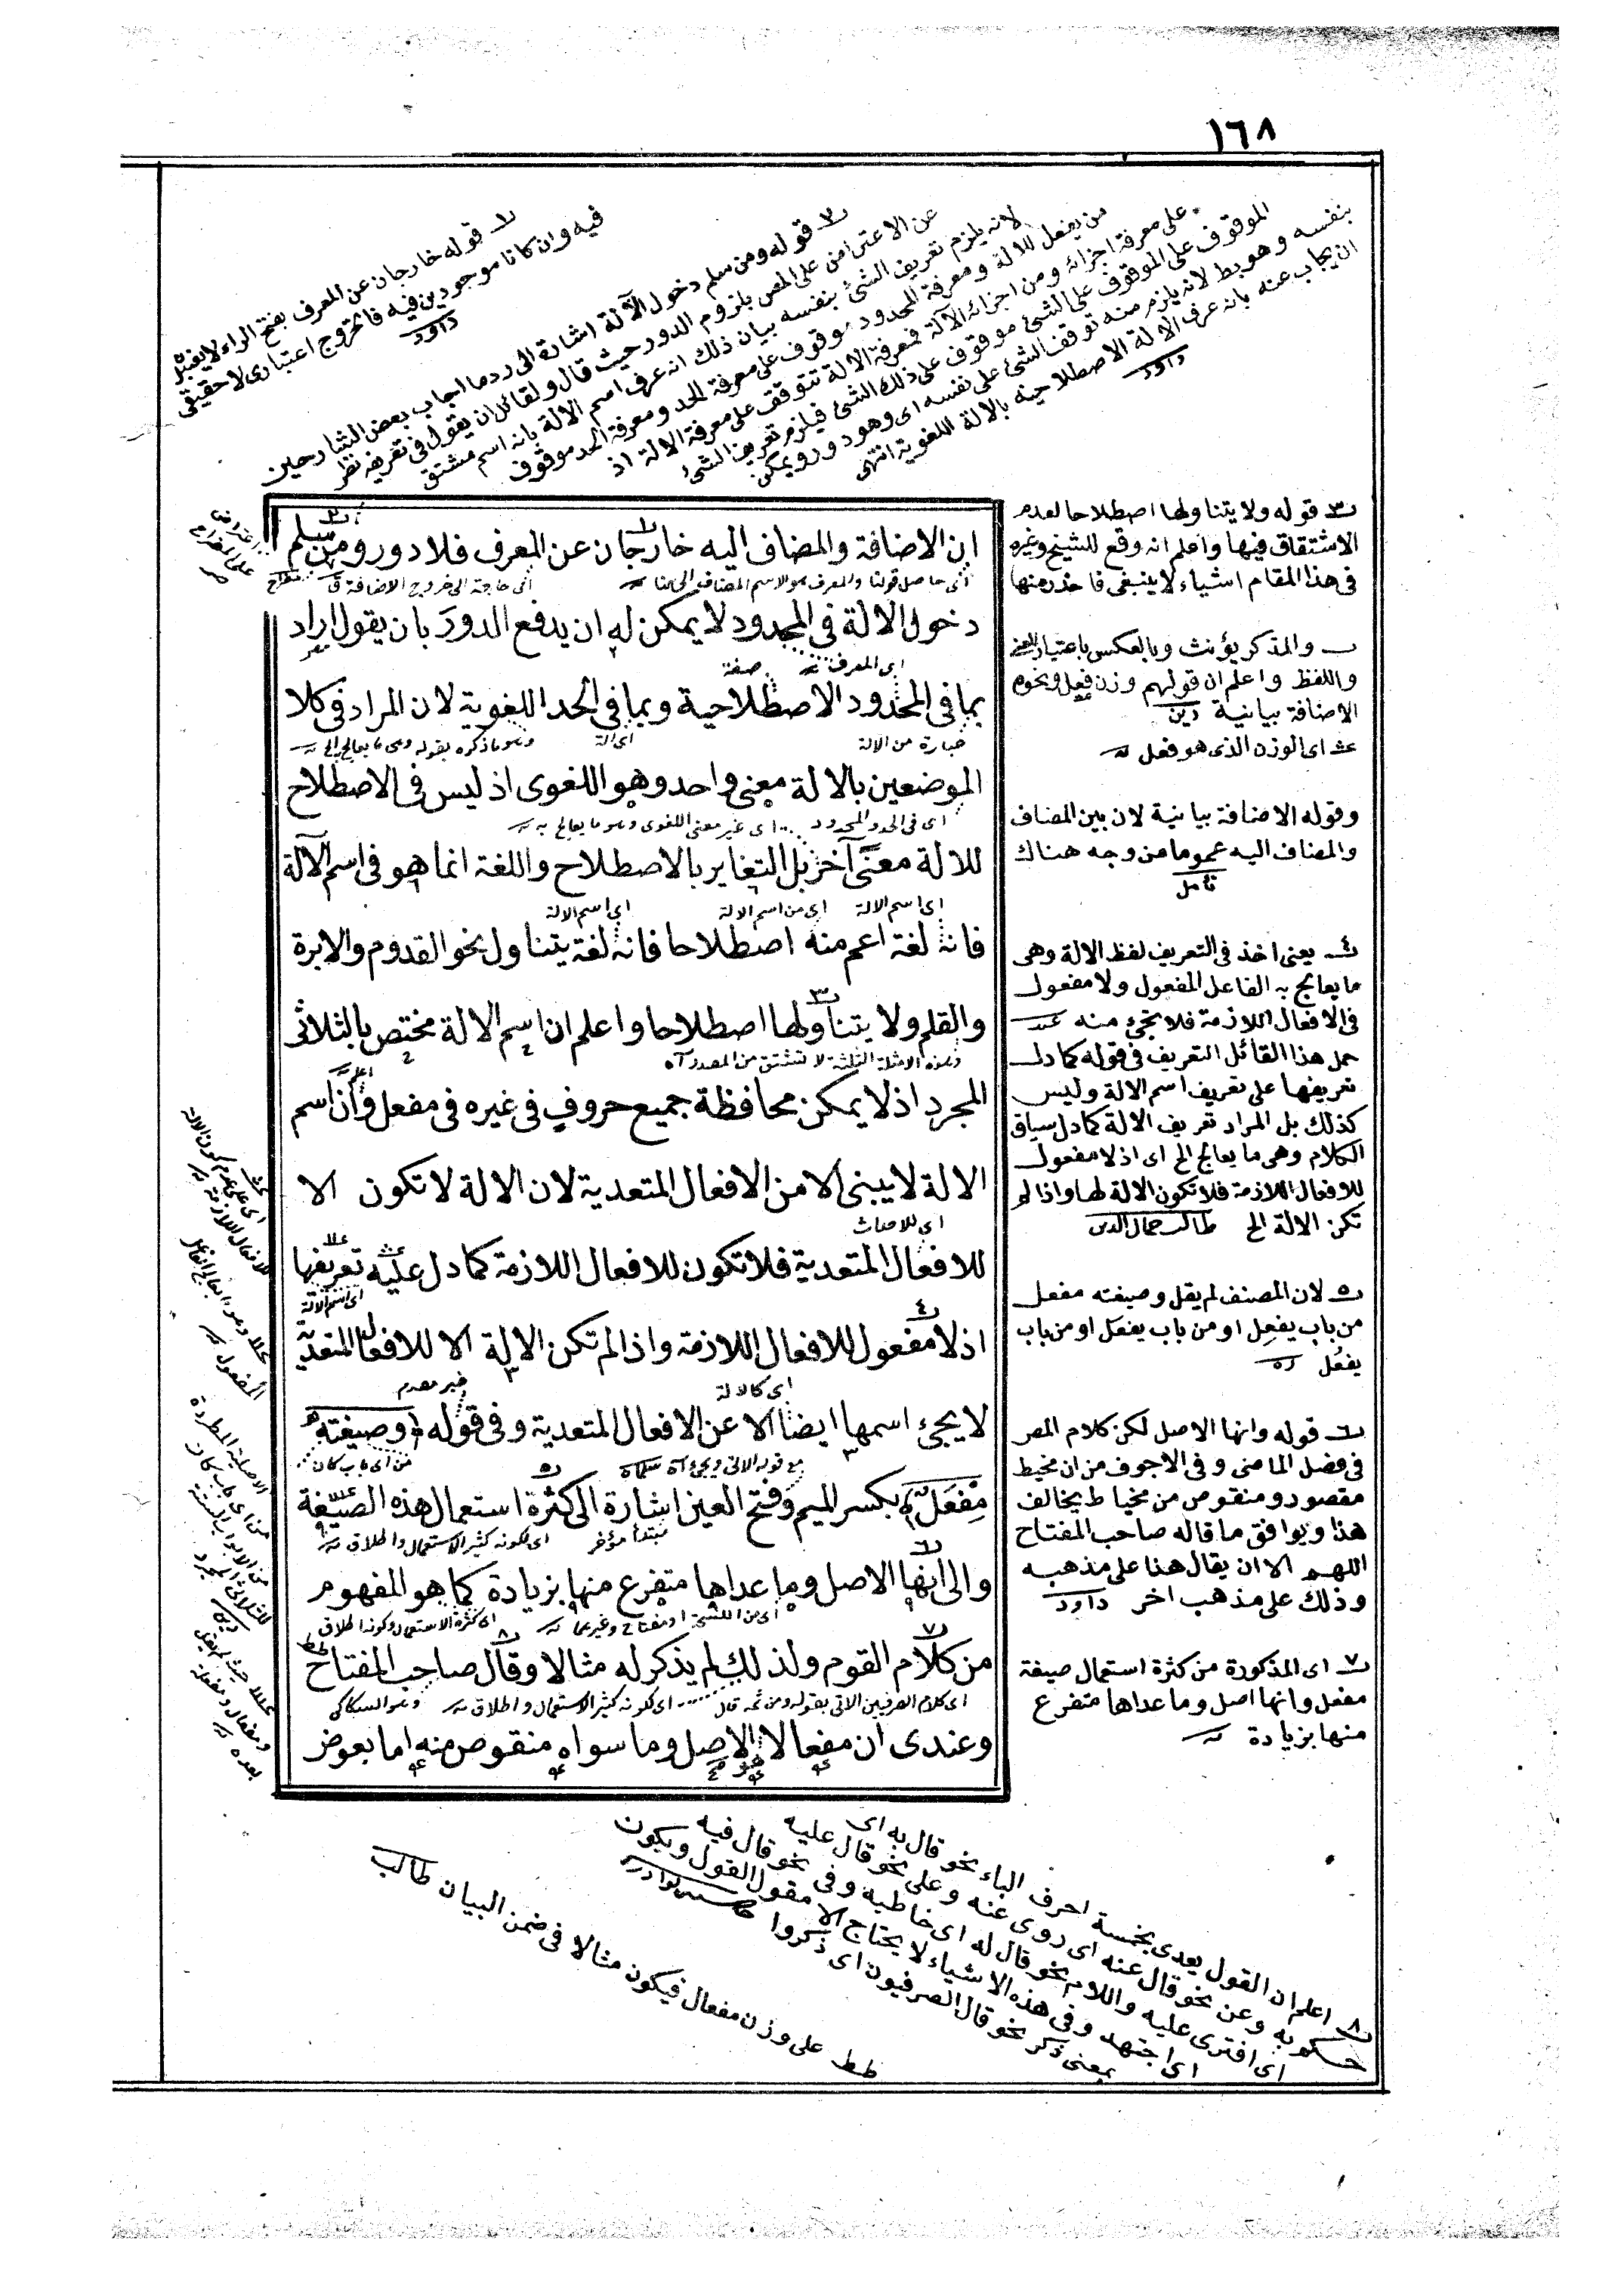 ١٦٨
١ قوله خارجان عن المعرف بفتح الراء لا يغيره
فيه وان كانا موجودين فيه فالخروج اعتبارى لا حقيقى
داود
٢ قوله ومن سلم دخول الآلة اشارة الى رد ما اجاب بعض الشارحين
عن الاعتراض على المص بلزوم الدور حيث قال ولقائل ان يقول فى تعريفه نظر
لانه يلزم تعريف الشئ بنفسه بيان ذلك انه عرف اسم الالة بانه اسم مشتق
من يفعل للالة ومعرفة المحدود موقوف على معرفة الحد ومعرفة الحد موقوف
على معرفة اجزائه ومن اجزائه الآلة فمعرفة الالة تتوقف على معرفة الالة اذ
الموقوف على الموقوف على الشئ موقوف على ذلك الشئ فيلزم تعريف الشئ
بنفسه وهو بط لانه يلزم منه توقف الشئ على نفسه اى وهو دور ويمكن
ان يجاب عنه بانه عرف الالة الاصطلاحيه بالالة اللغوية انتهى
داود
ان الاضافة والمضاف اليه خارجان عن المعرف فلا دور ومن سلم
دخول الالة فى المحدود لا يمكن له ان يدفع الدور بان يقول ايراد
اى المعرف صفة
بما فى المحدود الاصطلاحية وبما فى الحد اللغوية لان المراد فى كلا
عبارة من الالة اى الة وهو ما ذكره بقوله وهى ما يعالج الخ
الموضعين بالالة معنى واحد وهو اللغوى اذ ليس فى الاصطلاح
اى فى الحد والمحدود اى غير معنى اللغوى وهو ما يعالج به
للالة معنى آخر بل التغاير بالاصطلاح واللغة انما هو فى اسم الآلة
اى اسم الالة اى من اسم الالة اى اسم الالة
فانه لغة اعم منه اصطلاحا فانه لغة يتناول نحو القدوم والابرة
والقلم ولا يتناولها اصطلاحا واعلم ان اسم الالة مختص بالثلاثى
وهذه الامثلة الثلثة لا تشتق من المصدر اه
المجرد اذ لا يمكن محافظة جميع حروف فى غيره فى مفعل وان اسم
الالة لا يبنى الا من الافعال المتعدية لان الالة لا تكون الا
اى للاحداث
للافعال المتعدية فلا تكون للافعال اللازمة كما دل عليه تعريفها
اى اسم الالة
اذ لا مفعول للافعال اللازمة واذا لم تكن الالة الا للافعال المتعدية
اى كالالة خبر مقدم
لا يجئ اسمها ايضا الا عن الافعال المتعدية وفى قوله وصيغته
من اى باب كان
مِفْعَلٌ بكسر الميم وفتح العين اشارة الى كثرة استعمال هذه الصيغة
مبتدأ مؤخر اى لكونه كثير الاستعمال واطلاق
والى انها الاصل وما عداها متفرع منها بزيادة كما هو المفهوم
اى كثرة الاستعمال وكونه اطلاق
من كلام القوم ولذلك لم يذكر له مثالا وقال صاحب المفتاح
اى كلام الصرفيين الاتى بقوله ومن ثمه قال اى كونه كثير الاستعمال واطلاق وهو السكاكى
وعندى ان مفعالا الاصل وما سواه منقوص منه اما بعوض
٣ قوله ولا يتناولها اصطلاحا لعدم
الاشتقاق فيها واعلم انه وقع للشيخ وغيره
فى هذا المقام اشياء لا ينبغى فاحذر منها
والمذكر يؤنث وبالعكس باعتبار المعنى
واللفظ واعلم ان قولهم وزن فعل ونحوه
الاضافة بيانية
اى الوزن الذى هو فعل
وقوله الاضافة بيانية لان بين المضاف
والمضاف اليه عموما من وجه هناك
تأمل
٤ يعنى اخذ فى التعريف لفظ الالة وهى
ما يعالج به الفاعل المفعول ولا مفعول
فى الافعال اللازمة فلا يجئ منه
حمل هذا القائل التعريف فى قوله كما دل
تعريفها على تعريف اسم الالة وليس
كذلك بل المراد تعريف الالة كما دل سياق
الكلام وهى ما يعالج الخ اى اذ لا مفعول
للافعال اللازمة فلا تكون الالة لها واذا لم
تكن الالة الخ طالب جمال الدين
٥ لان المصنف لم يقل وصيغته مفعل
من باب يفعِل او من باب يفعَل او من باب
يفعُل
٦ قوله وانها الاصل لكن كلام المص
فى فصل الماضى وفى الاجوف من ان مخيط
مقصور ومنقوص من مخياط يخالف
هذا ويوافق ما قاله صاحب المفتاح
اللهم الا ان يقال هنا على مذهبه
وذلك على مذهب اخر داود
٧ اى المذكورة من كثرة استعمال صيغة
مفعل وانها اصل وما عداها متفرع
منها بزيادة
٨ اعلم ان القول يعدى بخمسة احرف الباء نحو قال به اى
حكم به وعن نحو قال عنه اى روى عنه وعلى نحو قال عليه
اى افترى عليه واللام نحو قال له اى خاطبه وفى نحو قال فيه
اى اجتهد وفى هذه الاشياء لا يحتاج الا مقول القول ويكون
بمعنى ذكر نحو قال الصرفيون اى ذكروا
طط على وزن مفعال فيكون مثالا فى ضمن البيان طالب